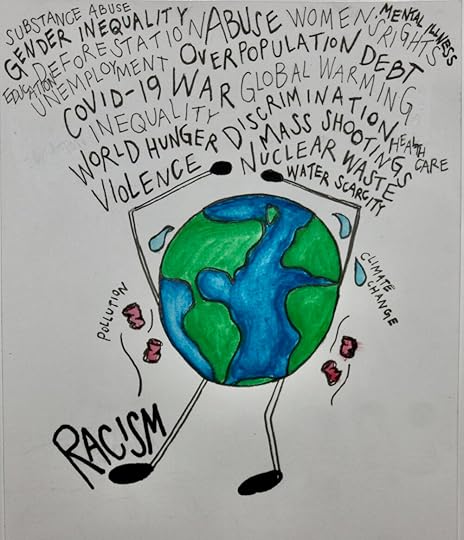 SUBSTANCE ABUSE
GENDER INEQUALITY
ABUSE
WOMEN'S RIGHTS
MENTAL ILLNESS
EDUCATION
DEFORESTATION
OVERPOPULATION
DEBT
UNEMPLOYMENT
COVID-19
WAR
GLOBAL WARMING
INEQUALITY
DISCRIMINATION
HEALTH CARE
WORLD HUNGER
MASS SHOOTINGS
VIOLENCE
NUCLEAR WASTE
WATER SCARCITY
POLLUTION
CLIMATE
CHANGE
RACISM